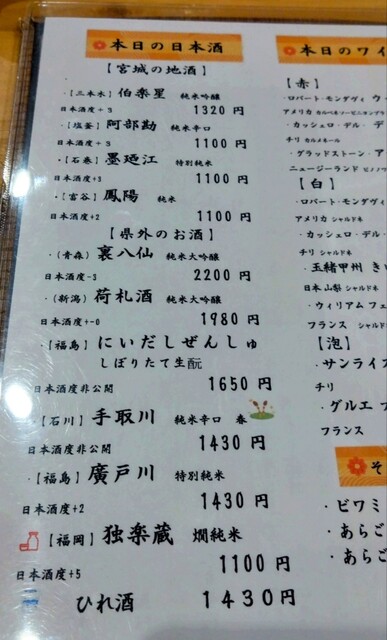 本日の日本酒
【宮城の地酒】
・【三本木】伯楽星 純米吟醸
日本酒度+3 1320円
・【塩釜】阿部勘 純米辛口
日本酒度+3 1100円
・【石巻】墨廼江 特別純米
日本酒度+3 1100円
・【富谷】鳳陽 純米
日本酒度+2 1100円
【県外のお酒】
・(青森)裏八仙 純米大吟醸
日本酒度-3 2200円
・(新潟)荷札酒 純米大吟醸
日本酒度+-0 1980円
・【福島】にいだしぜんしゅ
しぼりたて生酛
日本酒度非公開 1650円
【石川】手取川 純米辛口 春
日本酒度非公開 1430円
・【福島】廣戸川 特別純米
日本酒度+2 1430円
【福岡】独楽蔵 燗純米
日本酒度+5 1100円
ひれ酒 1430円
本日のワイ
【赤】
・ロバート・モンダヴィ ウ
アメリカ カルベネソービニンブラ
・カッシェロ・デル・デ
チリ カルメネール
・グラッドストーン・ア
ニュージーランド ピノノワ
【白】
・ロバート・モンダヴィ
アメリカ シャルドネ
・カッシェロ・デル・
チリ シャルドネ
・玉緒甲州 き
日本 山梨 シャルドネ
・ウィリアム フェ
フランス シャルドネ
【泡】
・サンライズ
チリ
・グルエ ブ
フランス
そ
・ビワミ
・あらご
・あらご